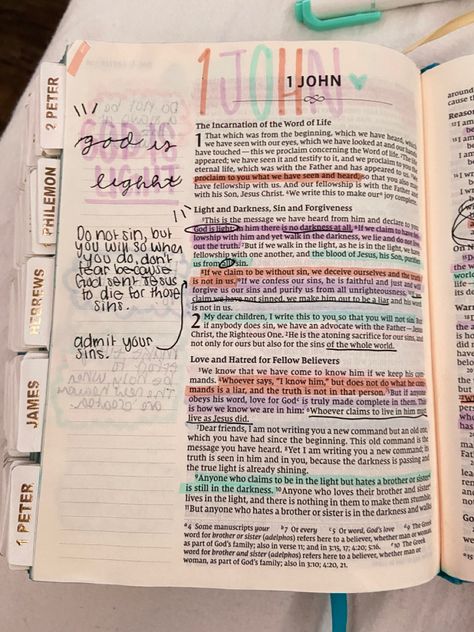 1 JOHN
1 JOHN
2 PETER
PHILEMON
HEBREWS
JAMES
1 PETER
god is
light
Do not sin, but
you will so when
you do, don't
fear because
God sent Jesus
to die for those
sins.
admit your
sins.
The Incarnation of the Word of Life
1 That which was from the beginning, which we have heard, which
we have seen with our eyes, which we have looked at and our hands
have touched—this we proclaim concerning the Word of life. ²The life
appeared; we have seen it and testify to it, and we proclaim to you the
eternal life, which was with the Father and has appeared to us. ³We
proclaim to you what we have seen and heard, so that you also may
have fellowship with us. And our fellowship is with the Father and
with his Son, Jesus Christ. ⁴We write this to make our joy complete.
Light and Darkness, Sin and Forgiveness
⁵This is the message we have heard from him and declare to you:
God is light; in him there is no darkness at all. ⁶If we claim to have
fellowship with him and yet walk in the darkness, we lie and do not live
out the truth. ⁷But if we walk in the light, as he is in the light, we have
fellowship with one another, and the blood of Jesus, his Son, purifies
us from all sin.
⁸If we claim to be without sin, we deceive ourselves and the truth
is not in us. ⁹If we confess our sins, he is faithful and just and will
forgive us our sins and purify us from all unrighteousness. ¹⁰If we
claim we have not sinned, we make him out to be a liar and his word
is not in us.
2 My dear children, I write this to you so that you will not sin. But
if anybody does sin, we have an advocate with the Father—Jesus
Christ, the Righteous One. ²He is the atoning sacrifice for our sins, and
not only for ours but also for the sins of the whole world.
Love and Hatred for Fellow Believers
³We know that we have come to know him if we keep his com-
mands. ⁴Whoever says, "I know him," but does not do what he com-
mands is a liar, and the truth is not in that person. ⁵But if anyone
obeys his word, love for God is truly made complete in them. This
is how we know we are in him: ⁶Whoever claims to live in him must
live as Jesus did.
⁷Dear friends, I am not writing you a new command but an old one,
which you have had since the beginning. This old command is the
message you have heard. ⁸Yet I am writing you a new command; its
truth is seen in him and in you, because the darkness is passing and
the true light is already shining.
⁹Anyone who claims to be in the light but hates a brother or sister
is still in the darkness. ¹⁰Anyone who loves their brother and sister
lives in the light, and there is nothing in them to make them stumble.
¹¹But anyone who hates a brother or sister is in the darkness and walks
4 Some manuscripts your 7 Or every 5 Or word, God's love 10 The Greek
word for brother or sister (adelphos) refers here to a believer, whether man or
woman, as part of God's family; also in verse 11; and in 3:15, 17; 4:20; 5:16. 10 The Greek
word for brother and sister (adelphos) refers here to a believer, whether man or
woman, as part of God's family; also in 3:10; 4:20, 21.